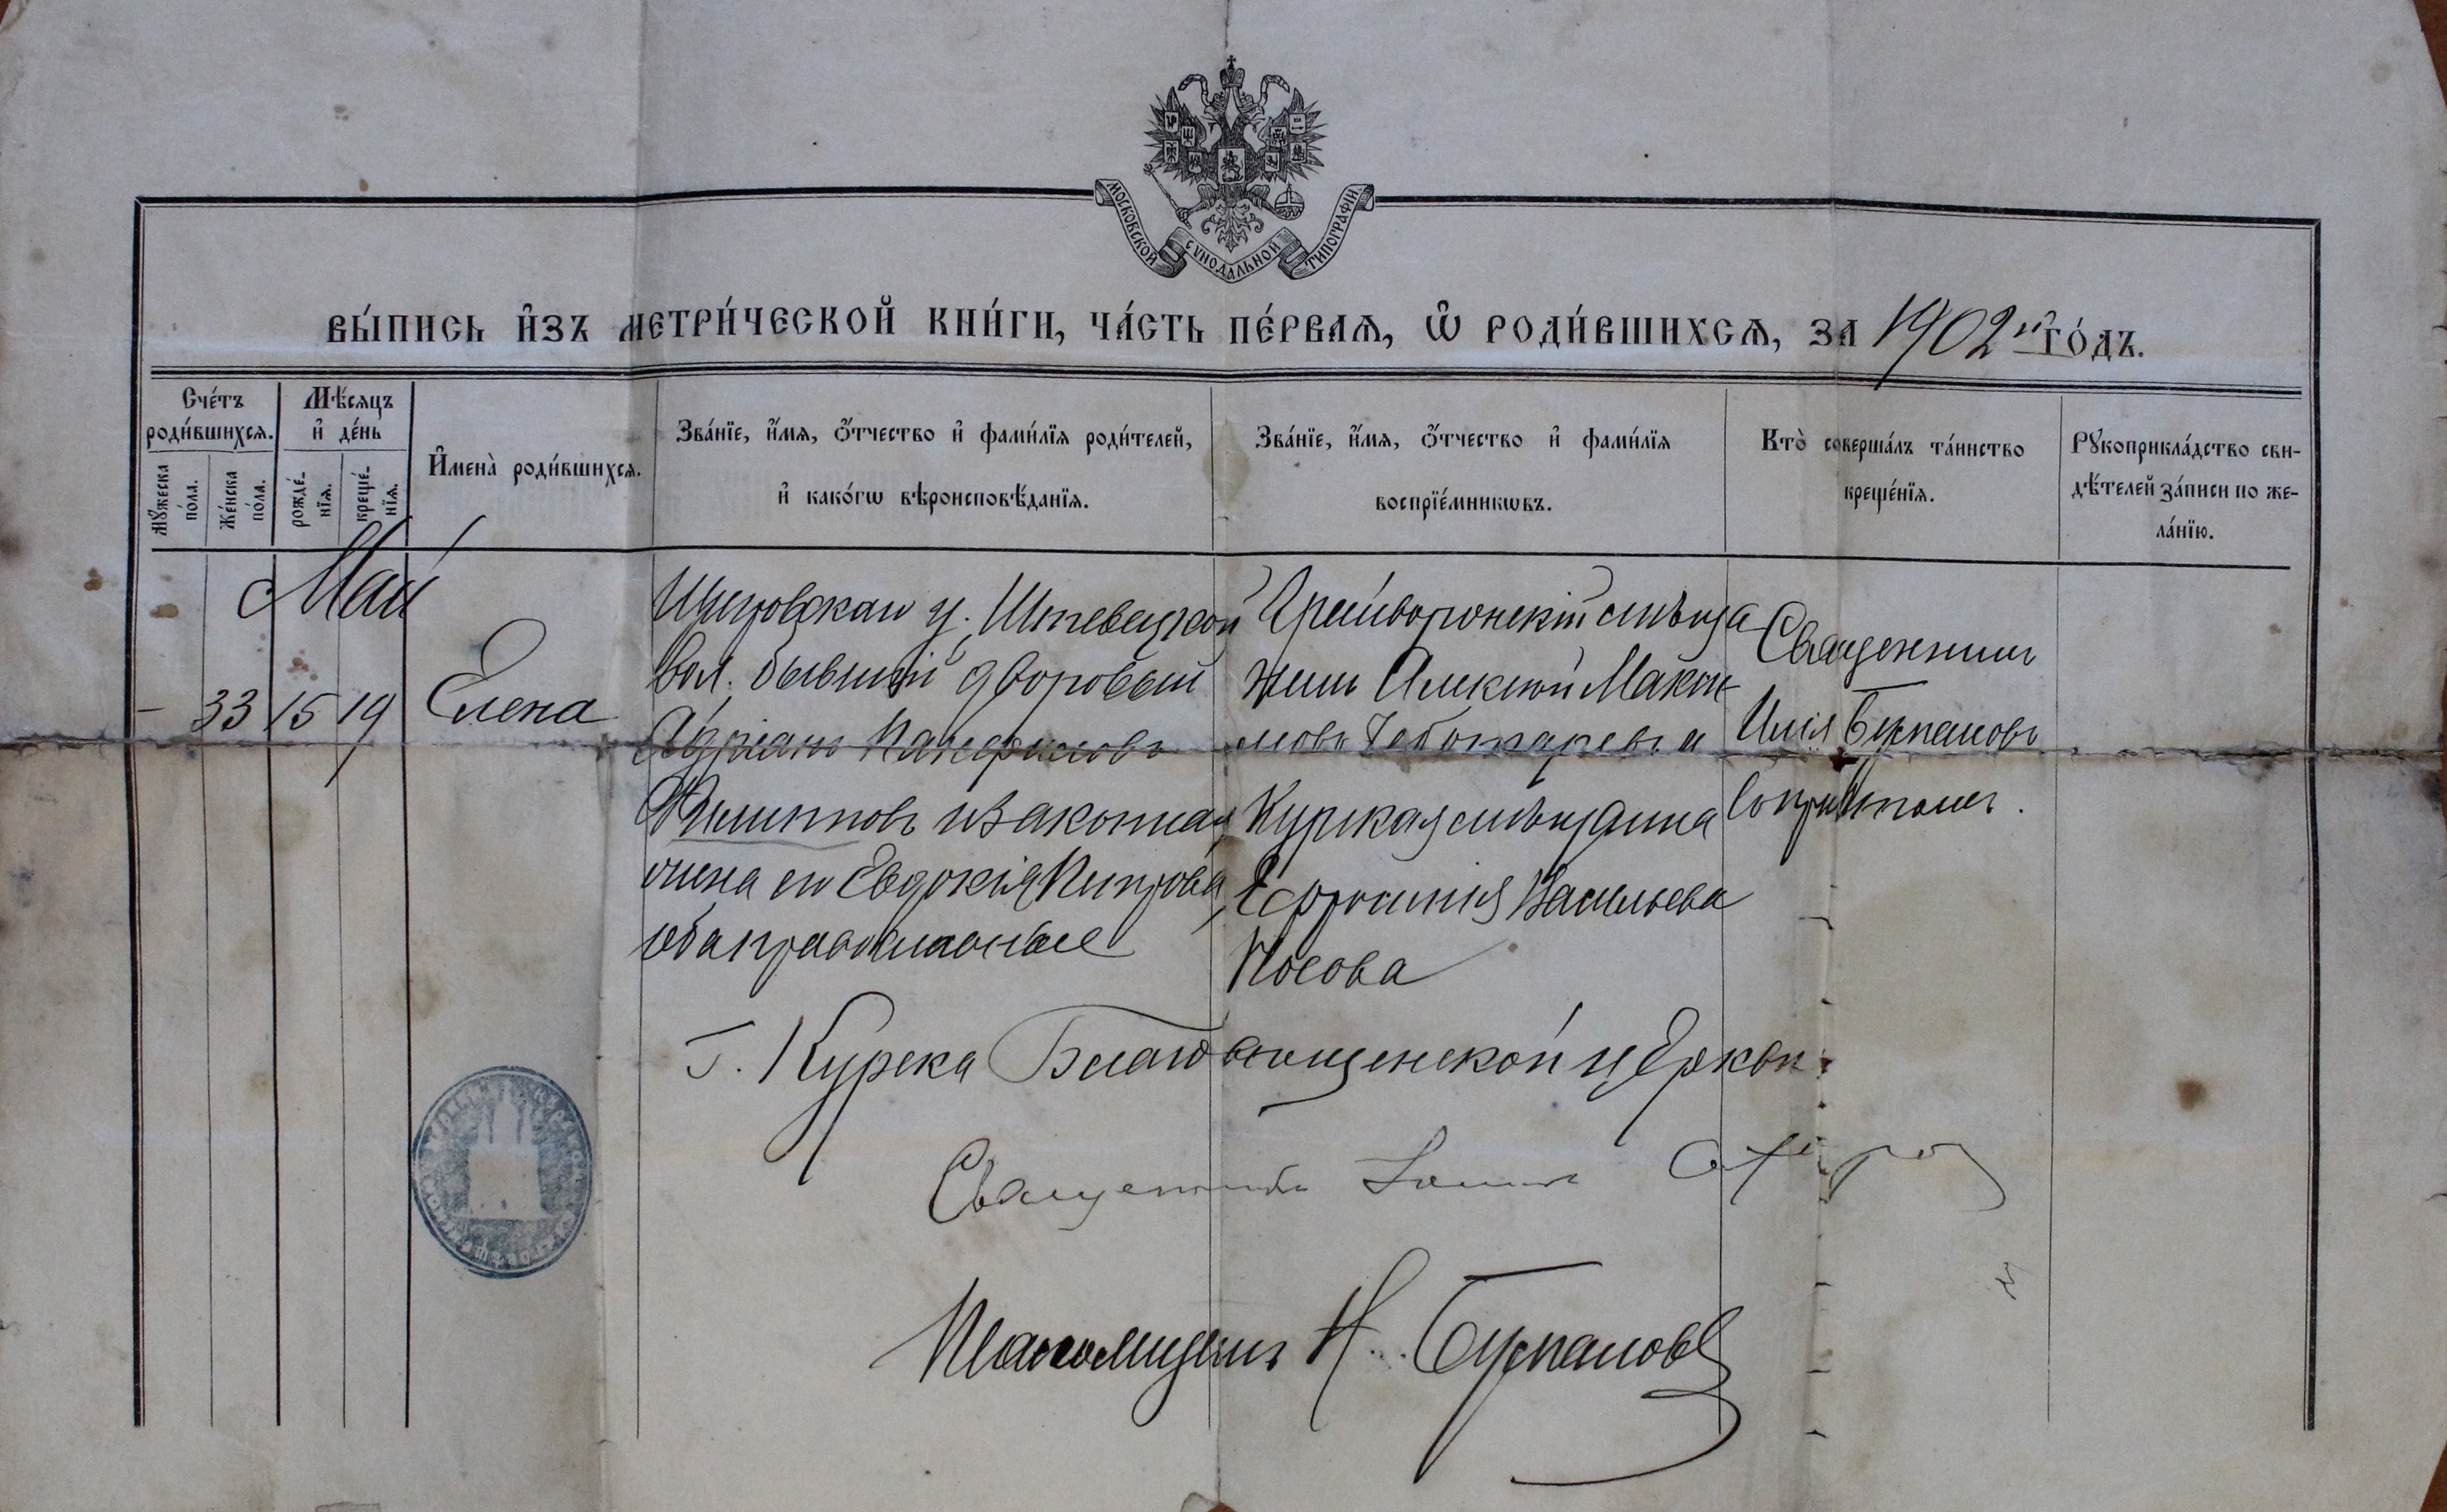 МОСКОВСКОЙ СѴНОДАЛЬНОЙ ТИПОГРАФІИ
ВЫ́ПИСЬ И҆ЗЪ МЕТРИ́ЧЕСКОЙ КНИ́ГИ, ЧА́СТЬ ПЕ́РВАѦ, Ѽ РОДИ́ВШИХСѦ, ЗА 1902й ГО́ДЪ.
Сче́тъ роди́вшихсѧ.
Мѹ́жеска по́ла.
Же́нска по́ла.
Мѣ́сѧцъ и҆ де́нь
рожде́-
нїѧ.
креще́-
нїѧ.
И҆мена̀ роди́вшихсѧ.
Зва́нїе, и҆́мѧ, ѻ҆́тчество и҆ фами́лїѧ роди́телей,
и҆ како́гѡ вѣроисповѣ́данїѧ.
Зва́нїе, и҆́мѧ, ѻ҆́тчество и҆ фами́лїѧ
воспрїе́мникѡвъ.
Кто̀ соверша́лъ та́инство
креще́нїѧ.
Рѹкоприкла́дство сви-
дѣ́телей за́писи по же-
ла́нїю.
Май
– 33 15 19
Елена
Щигровскаго у. вол. бывшій дворовый
Адріанъ Панфиловъ
Филипповъ и законная
жена его Евдокія Петрова,
оба православные
Грайворонскій мѣща
нинъ Алексѣй Макси
мовъ Чеботаревъ и
Курская мѣщанка
Ефросинія Васильева
Носова
Священникъ
Илія Булгаковъ
съ причтомъ.
г. Курска Благовѣщенской церкви
Священникъ
Псаломщикъ Н. Булгаковъ